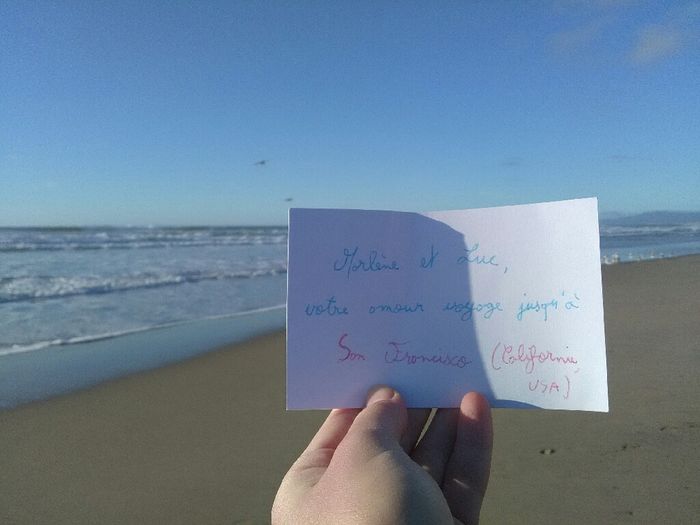 Marlène et Luc,
votre amour voyage jusqu'à
San Francisco (Californie,
USA)